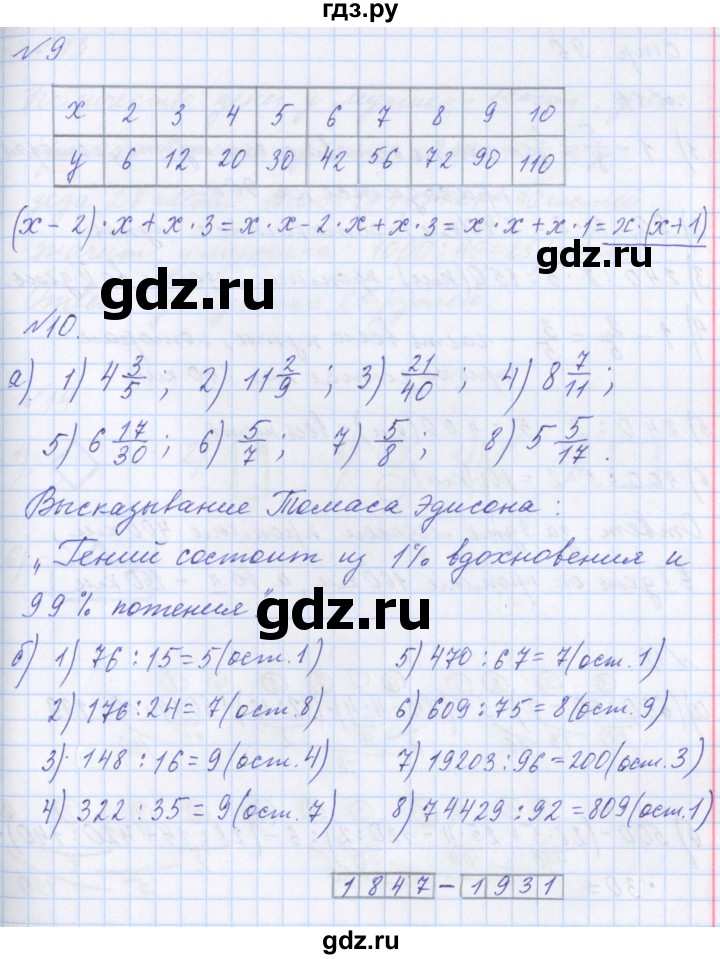 гдз.ру
№9
x 2 3 4 5 6 7 8 9 10
y 6 12 20 30 42 56 72 90 110
(x-2)·x+x·3=x·x-2·x+x·3=x·x+x·1=x·(x+1)
gdz.ru
gdz.ru
№10.
а) 1) 4 3/5; 2) 11 2/9; 3) 21/40; 4) 8 7/11;
5) 6 17/30; 6) 5/7; 7) 5/8; 8) 5 5/17.
Высказывание Томаса Эдисона:
„Гений состоит из 1% вдохновения и
99% потения"
gdz.ru
б) 1) 76:15=5(ост.1) 5) 470:67=7(ост.1)
2) 176:24=7(ост.8) 6) 609:75=8(ост.9)
3) 148:16=9(ост.4) 7) 19203:96=200(ост.3)
4) 322:35=9(ост.7) 8) 74429:92=809(ост.1)
1847-1931
gdz.ru